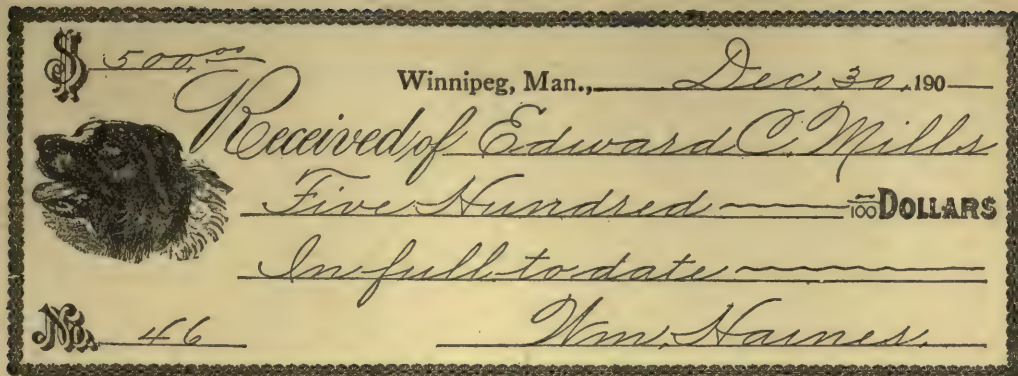 $ 500.00
Winnipeg, Man., Dec. 30, 190
Received of Edward C. Mills
Five Hundred — /100 DOLLARS
In full to date
No. 46
Wm. Haines.